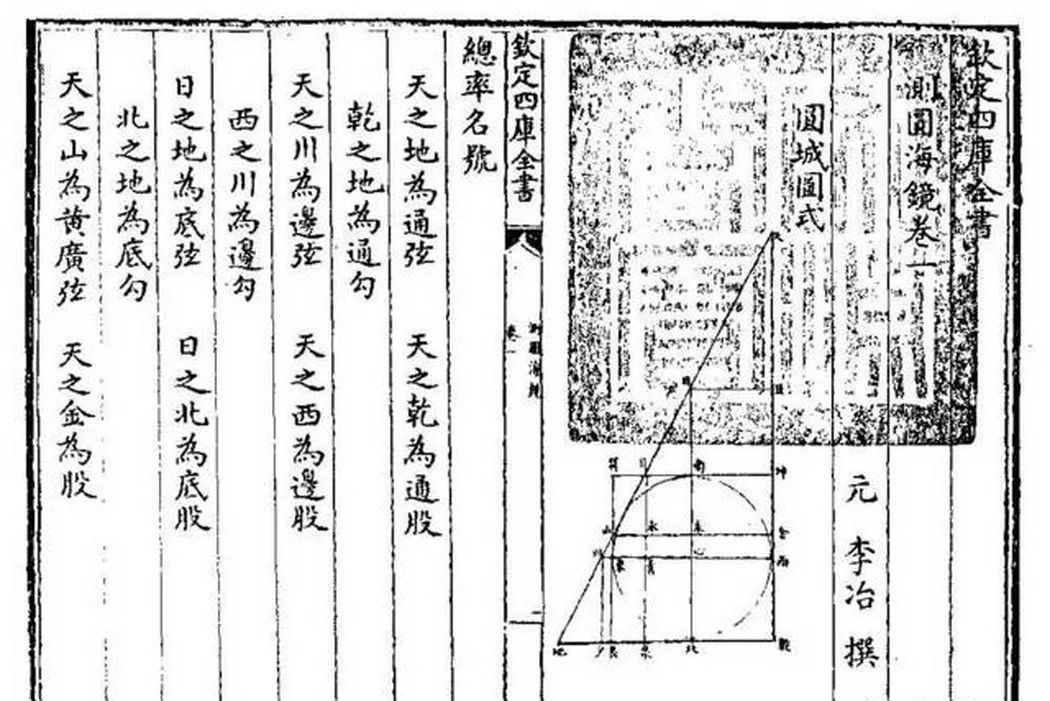 欽定四庫全書
測圓海鏡卷一
元 李冶 撰
圓城圖式
天
日
旦
巽
月
南
坤
山
朱
金
川
東
青
心
西
地
夕
艮
泉
北
乾
欽定四庫全書
測圓海鏡
卷一
二
總率名號
天之地為通弦 天之乾為通股
乾之地為通勾
天之川為邊弦 天之西為邊股
西之川為邊勾
日之地為底弦 日之北為底股
北之地為底勾
天之山為黃廣弦 天之金為股